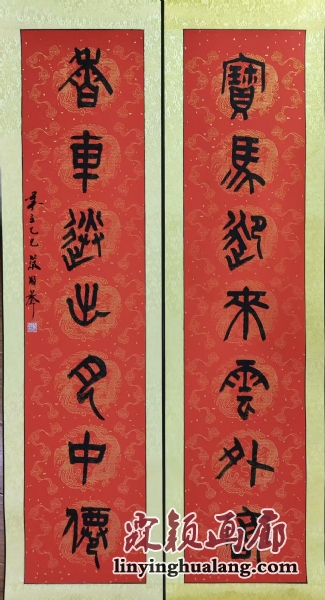 寶馬迎來雲外客
香車送出月中僊
乙巳
霖颖画廊
linyinghualang.com